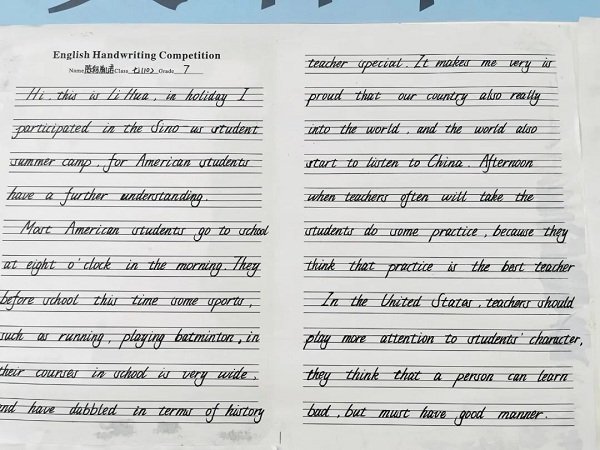 English Handwriting Competition
Name Class 七(10) Grade 7
Hi, this is Li Hua, in holiday I
participated in the Sino us student
summer camp, for American students
have a further understanding.
Most American students go to school
at eight o'clock in the morning. They
before school this time some sports,
such as running, playing batminton, in
their courses in school is very wide,
and have dabbled in terms of history
teacher special. It makes me very is
proud that our country also really
into the world, and the world also
start to listen to China. Afternoon
when teachers often will take the
students do some practice, because they
think that practice is the best teacher
In the United States, teachers should
play more attention to students' character,
they think that a person can learn
bad, but must have good manner.